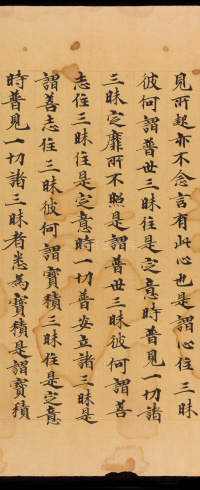 見所起亦不念言有此心也是謂心住三昧
彼何謂普世三昧住是定意時普見一切諸
三昧定靡所不照是謂普世三昧彼何謂善
志住三昧住是定意時一切普安立諸三昧是
謂善志住三昧彼何謂寶積三昧住是定意
時普見一切諸三昧者悉為寶積是謂寶積